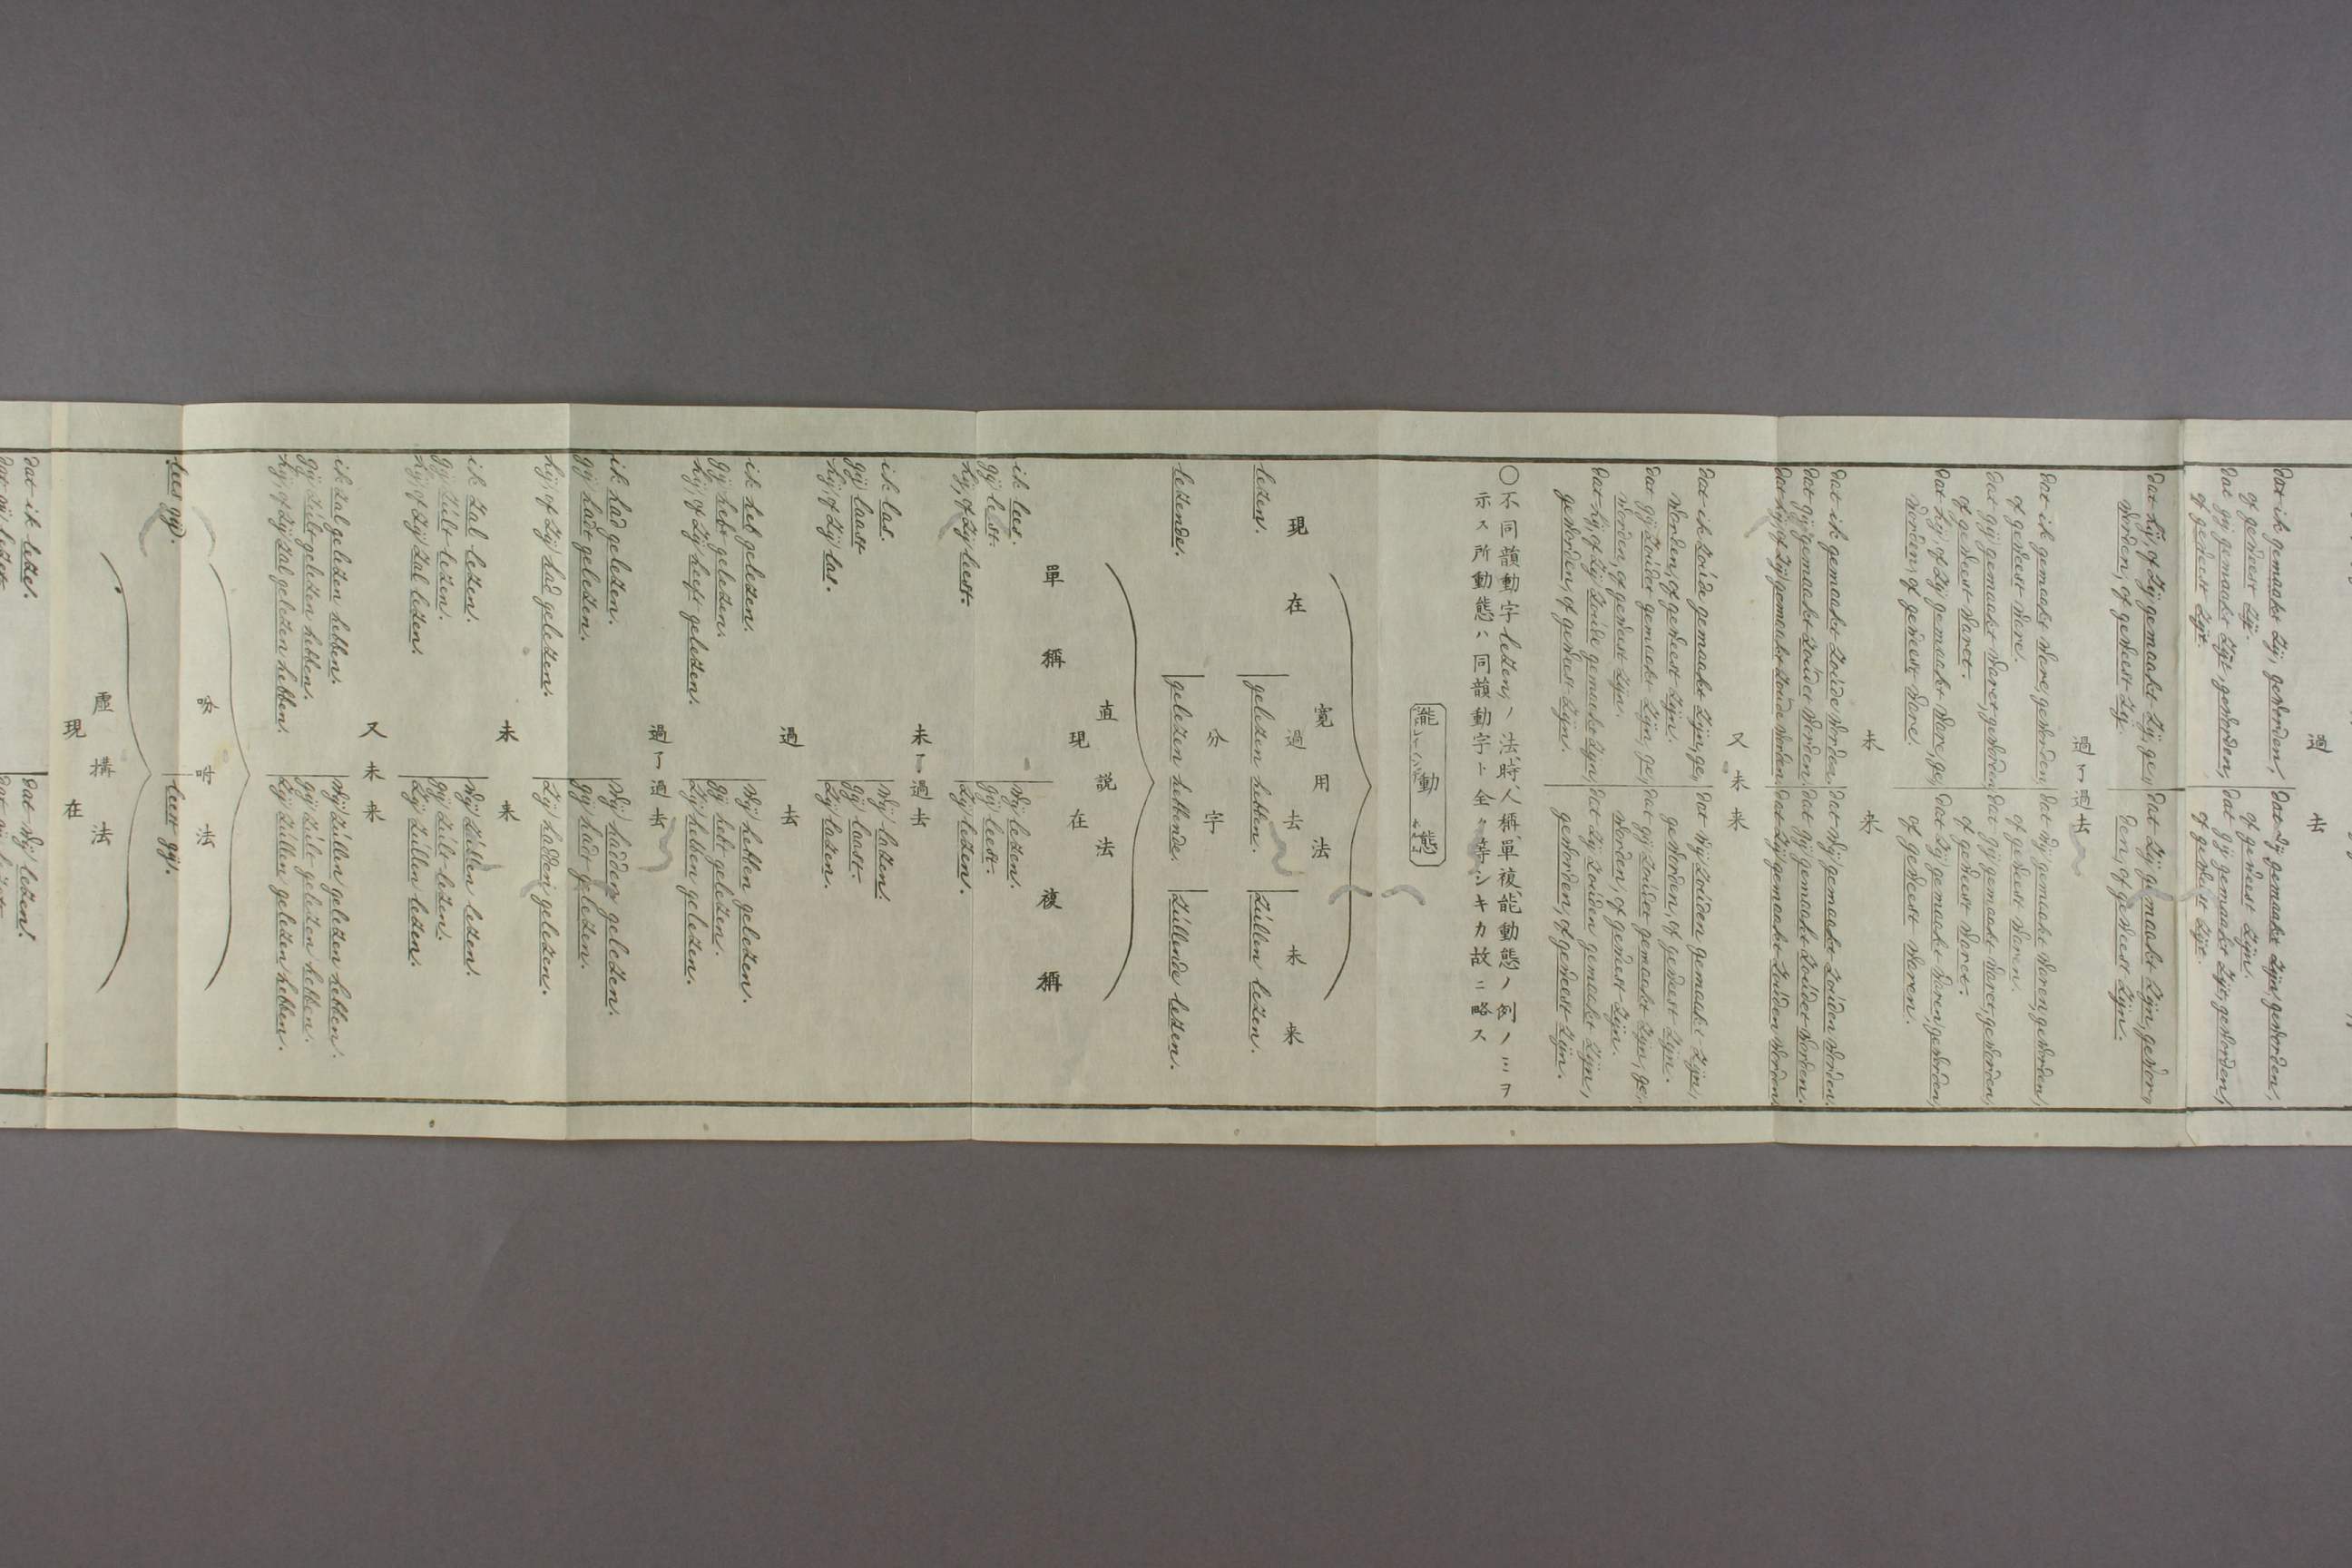 過去
dat ik gemaakt zij, geworden,
of geweest zij.
dat gij gemaakt zijt, geworden,
of geweest zijt.
dat wij gemaakt zijn, geworden,
of geweest zijn.
dat gij gemaakt zijt, geworden,
of geweest zijt.
dat hij of zij gemaakt zij, ge,
worden, of geweest zij.
dat zij gemaakt zijn, gewor,
den, of geweest zijn.
過了過去
dat ik gemaakt ware, geworden,
of geweest ware.
dat gij gemaakt waret, geworden,
of geweest waret.
dat hij of zij gemaakt ware, ge,
worden, of geweest ware.
dat wij gemaakt waren, geworden,
of geweest waren.
dat gij gemaakt waret, geworden,
of geweest waret.
dat zij gemaakt waren, geworden,
of geweest waren.
未来
dat ik gemaakt zoude worden.
dat gij gemaakt zoudet worden.
dat hij of zij gemaakt zoude worden.
dat wij gemaakt zouden worden.
dat gij gemaakt zoudet worden.
dat zij gemaakt zouden worden.
又未来
dat ik zoude gemaakt zijn, ge,
worden, of geweest zijn.
dat gij zoudet gemaakt zijn, ge,
worden, of geweest zijn.
dat hij of zij zoude gemaakt zijn,
geworden, of geweest zijn.
dat wij zouden gemaakt zijn,
geworden, of geweest zijn.
dat gij zoudet gemaakt zijn, ge,
worden, of geweest zijn.
dat zij zouden gemaakt zijn,
geworden, of geweest zijn.
○不同韻動字lezen,ノ法、時、人稱、單複、能動態ノ例ノミヲ
示ス所動態ハ同韻動字ト全ク等シキカ故ニ略ス
能動態
寛用法
現在 過去 未来
lezen. gelezen hebben. zúllen lezen.
分字
lezende. gelezen hebbende. zúllende lezen.
直説法
現在
單稱 複稱
ik lees.
gij leest.
hij, of zij leest.
wij lezen.
gij leest.
zij lezen.
未了過去
ik las.
gij laast
hij of zij las.
wij lazen.
gij laast.
zij lazen.
過去
ik heb gelezen.
gij hebt gelezen.
hij of zij heeft gelezen.
wij hebben gelezen.
gij hebt gelezen.
zij hebben gelezen.
過了過去
ik had gelezen.
gij hadt gelezen.
hij of zij had gelezen.
wij hadden gelezen.
gij hadt gelezen.
zij hadden gelezen.
未来
ik zal lezen.
gij zúlt lezen.
hij of zij zal lezen.
wij zúllen lezen.
gij zúlt lezen.
zij zúllen lezen.
又未来
ik zal gelezen hebben.
gij zúlt gelezen hebben.
hij of zij zal gelezen hebben.
wij zúllen gelezen hebben.
gij zúlt gelezen hebben.
zij zúllen gelezen hebben.
吩咐法
lees gij. leest gij.
虛構法
現在
dat ik leze. dat wij lezen.